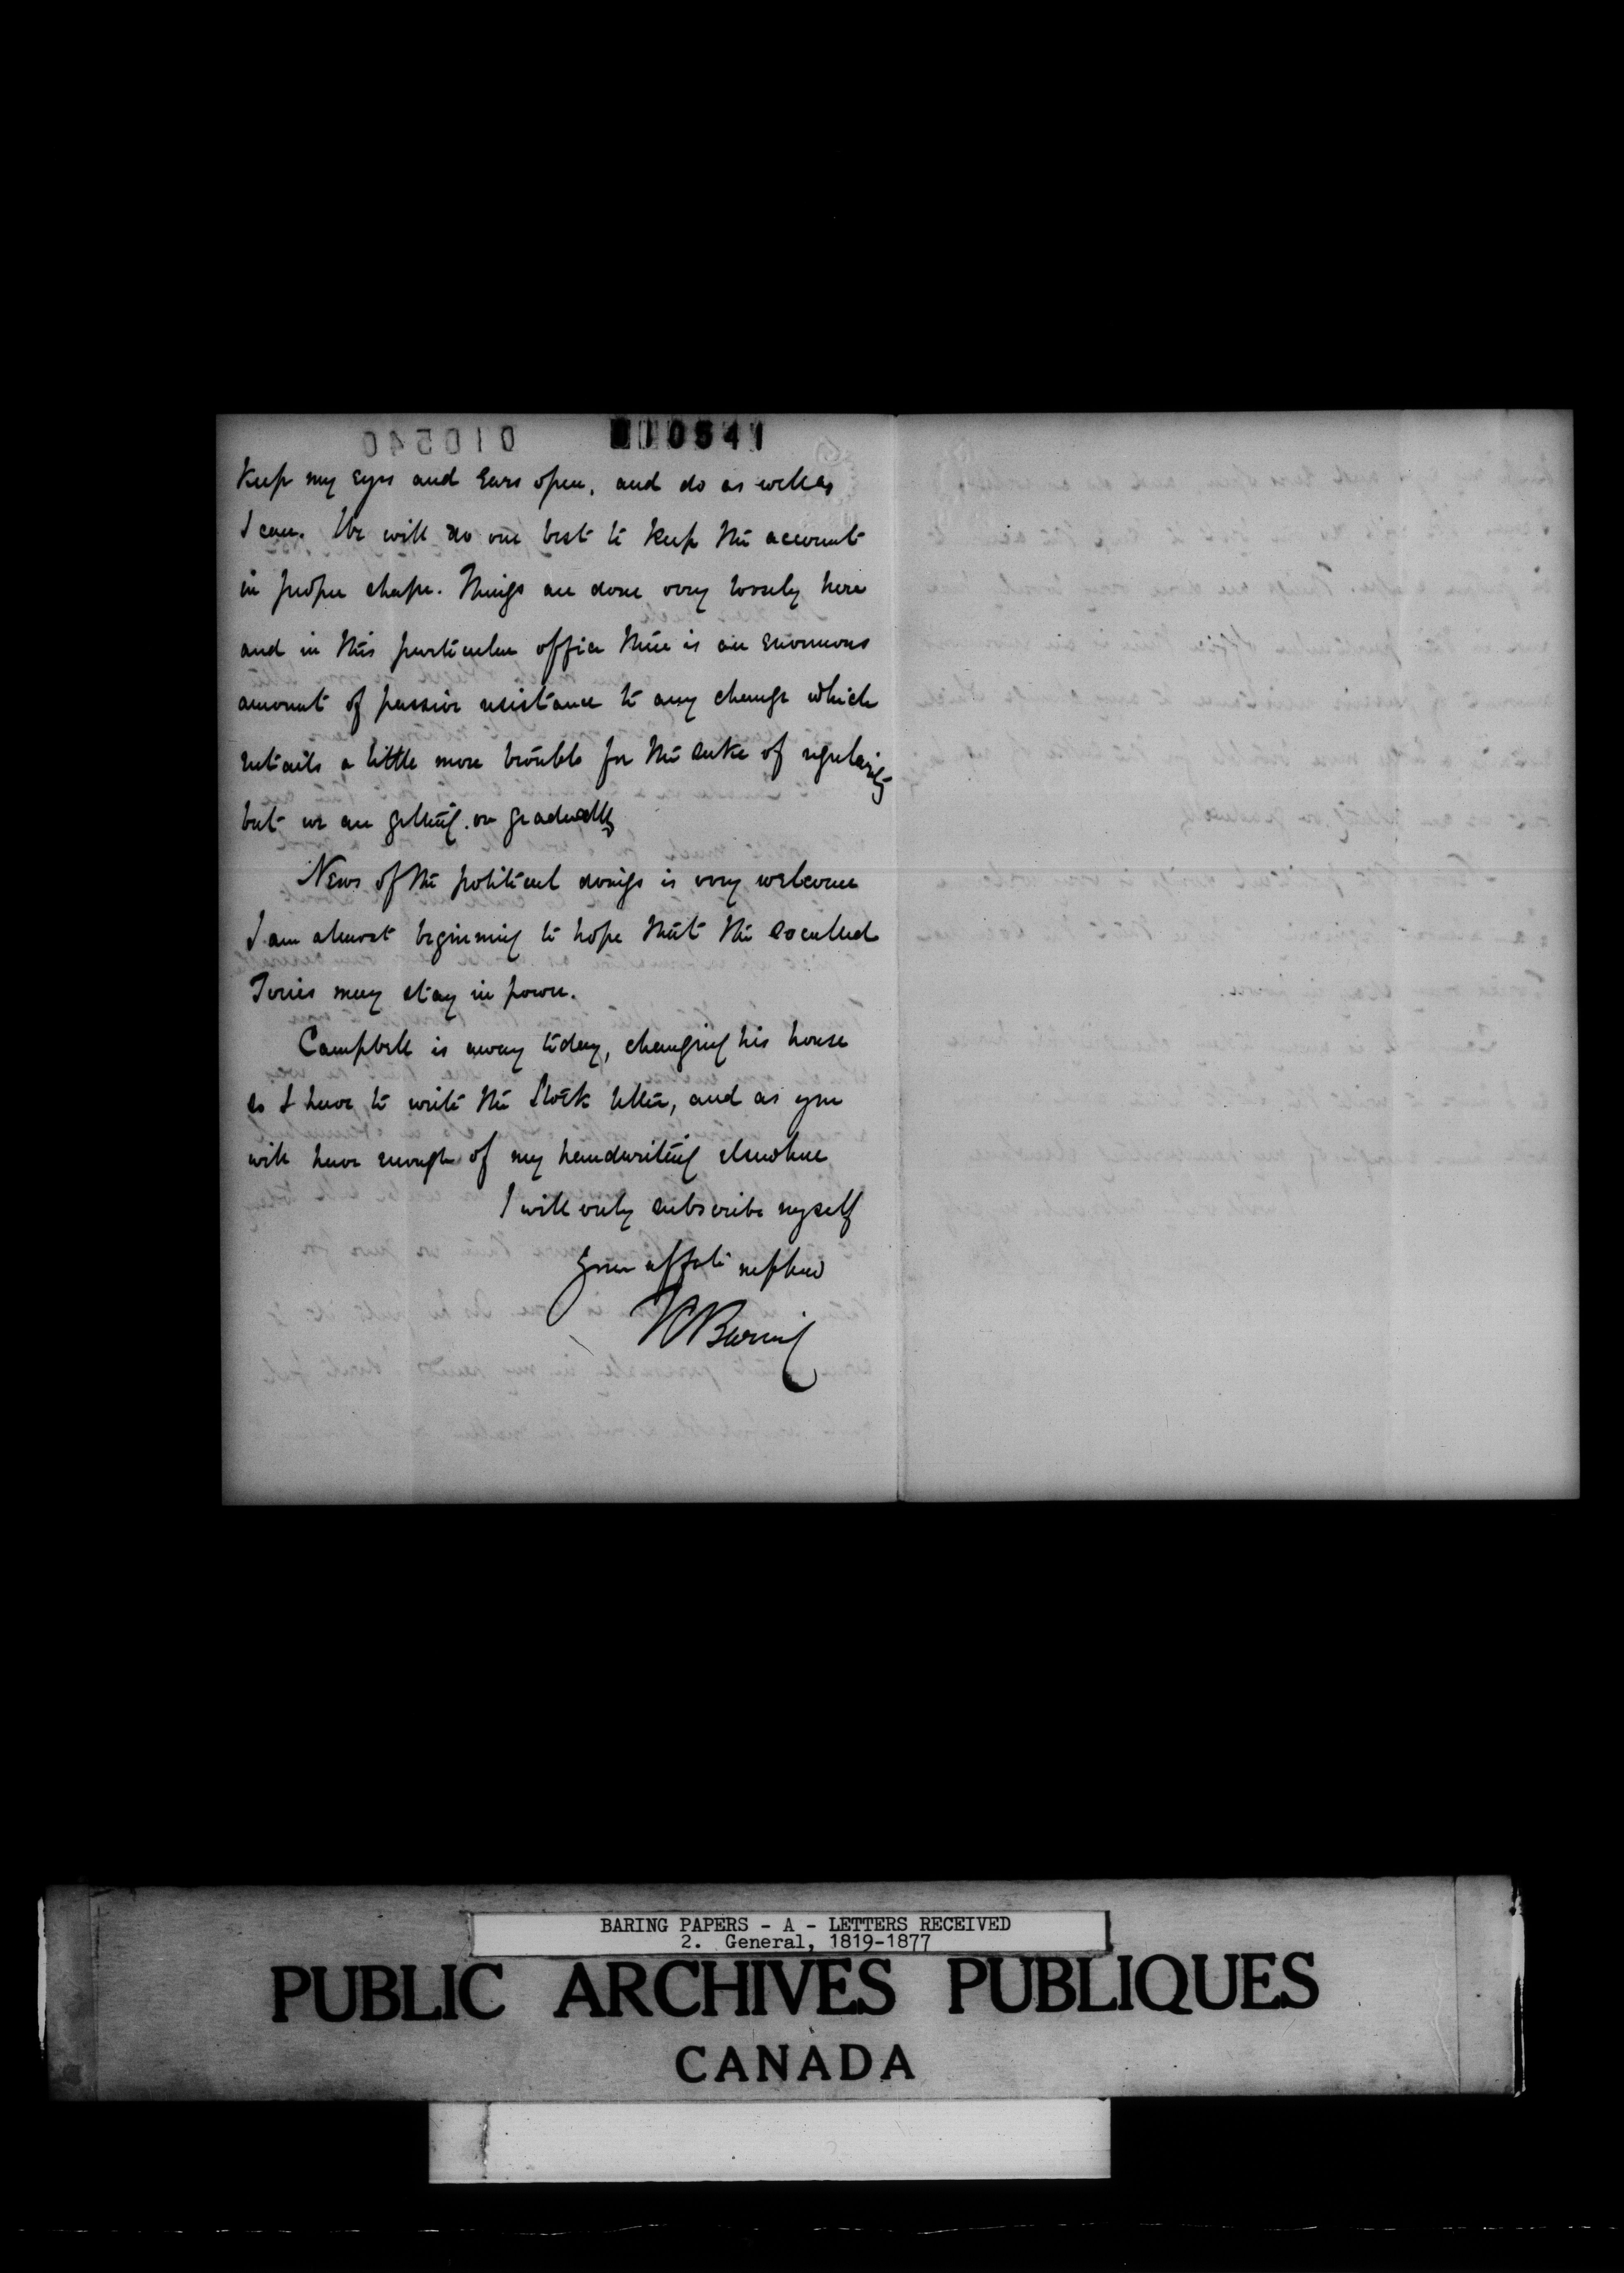 010541
Keep my eyes and ears open, and do as well as
I can. We will do our best to keep the account
in proper shape. Things are done very loosely here
and in this particular office there is an enormous
amount of passive resistance to any change which
entails a little more trouble for the sake of regularity
but we are getting on gradually
News of the political doings is very welcome
I am almost beginning to hope that the so called
Tories may stay in power.
Campbell is away today, changing his house
so I have to write the Stock letter, and as you
will have enough of my handwriting elsewhere
I will only subscribe myself
Your affate nephew
Baring
BARING PAPERS - A - LETTERS RECEIVED
2. General, 1819-1877
PUBLIC ARCHIVES PUBLIQUES
CANADA